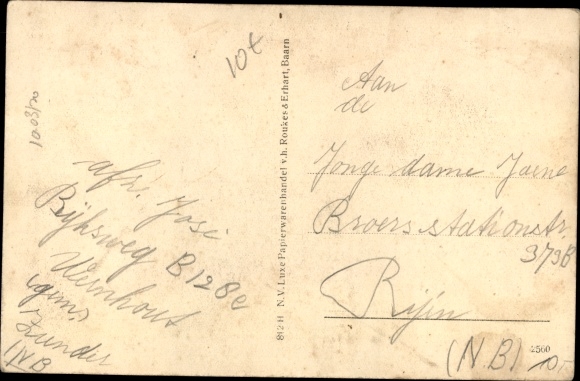 10 ct
10-03/20
afz. José
Rijksweg B128c
Wernhout
(gem.
Zunder
(N.B
812 H N.V. Luxe Papierwarenhandel v.h. Roukes & Erhart, Baarn
Aan
de
Jonge dame Jaene
Broers stationstr.
379B
Rijen
(N B)
4560
10,-